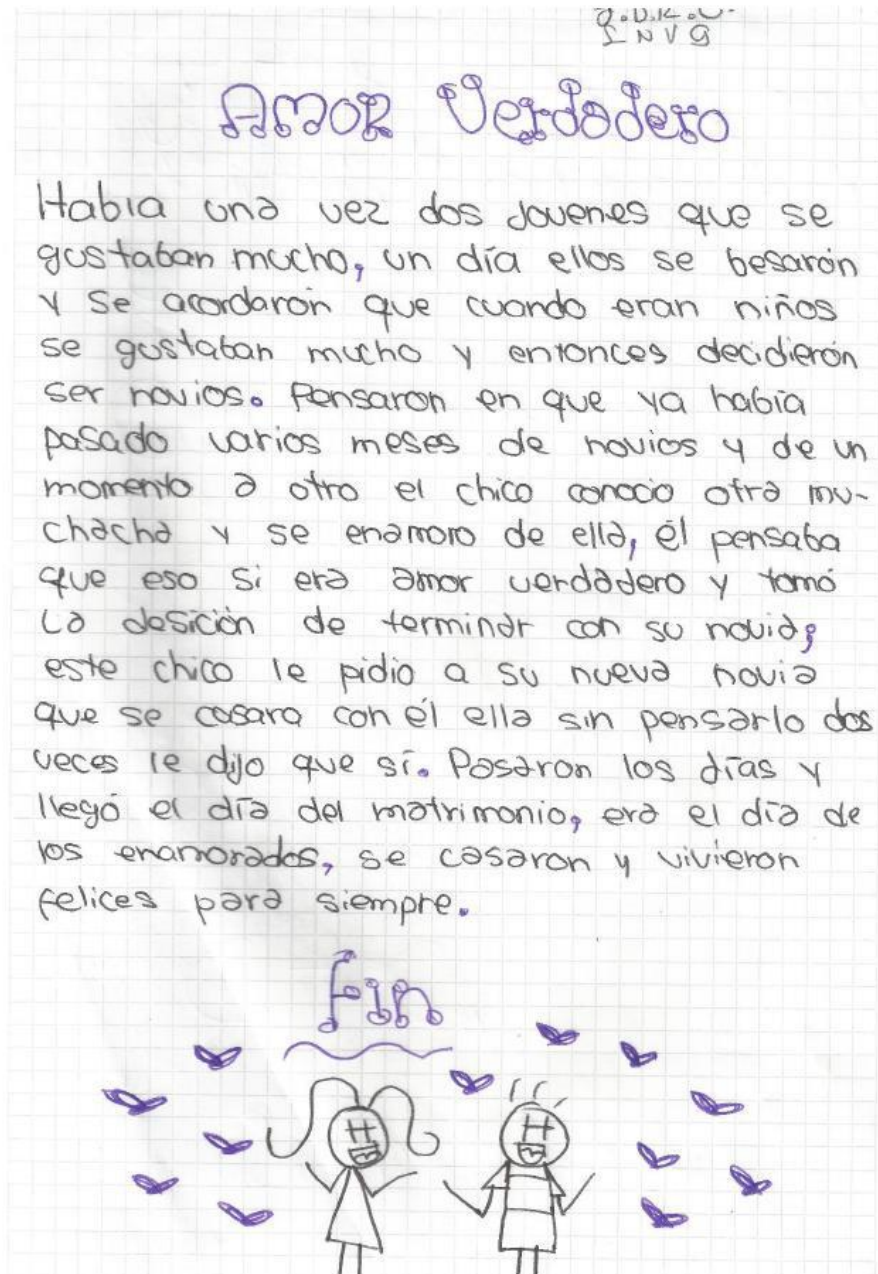 I N V G
Amor Verdadero
Había una vez dos jovenes que se
gustaban mucho, un día ellos se besarón
y se acordarón que cuando eran niños
se gustaban mucho y entonces decidierón
ser novios. Pensaron en que ya había
pasado varios meses de novios y de un
momento a otro el chico conocio otra mu-
chacha y se enamoro de ella, él pensaba
que eso si era amor verdadero y tomó
La desición de terminar con su novia;
este chico le pidio a su nueva novia
que se casara con él ella sin pensarlo dos
veces le dijo que sí. Pasaron los días y
llegó el día del matrimonio, era el día de
los enamorados, se casaron y vivieron
felices para siempre.
Fin